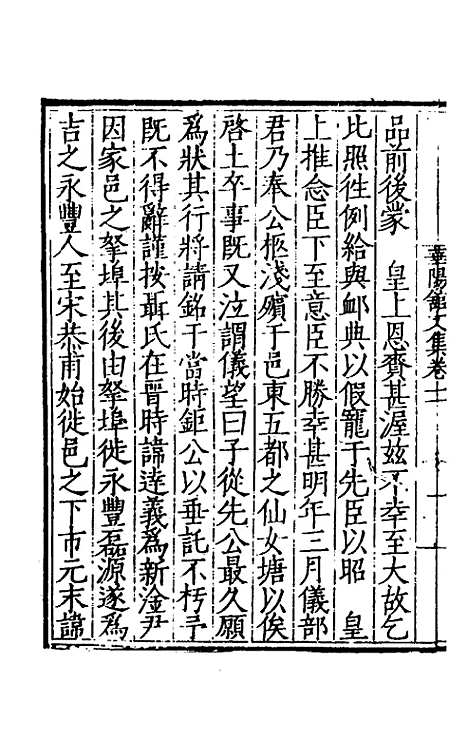 華陽館文集卷十一
品前後蒙　皇上恩賚甚渥玆不幸至大故乞
比照徃例給與卹典以假寵于先臣以昭　皇
上推念臣下至意臣不勝幸甚明年三月儀部
君乃奉公柩淺殯于邑東五都之仙女塘以俟
啓土卒事既又泣謂儀望曰子從先公最久願
爲狀其行將請銘于當時鉅公以垂託不朽予
既不得辭謹按聶氏在晋時諱逹義爲新淦尹
因家邑之拏埠其後由拏埠徙永豐磊源遂爲
吉之永豐人至宋恭甫始徙邑之下市元末諱